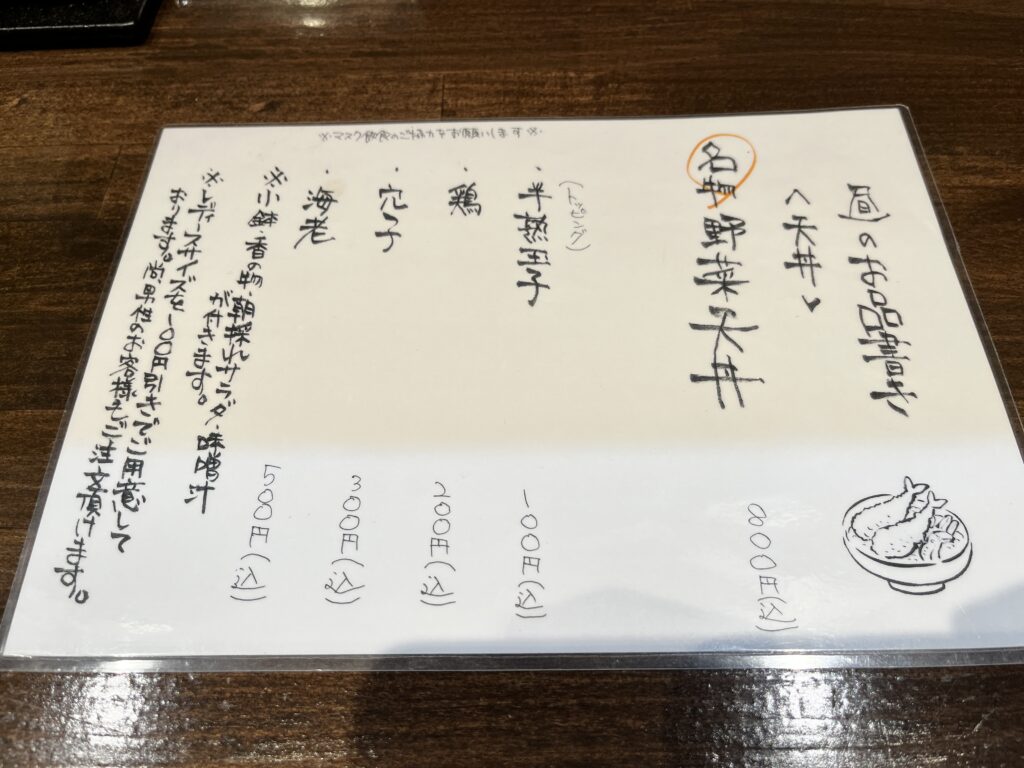 ※マスク飲食のご協力をお願いします※
昼のお品書き
〜天丼〜
名物野菜天丼 800円(込)
(トッピング)
・半熟玉子 一〇〇円(込)
・鶏 200円(込)
・穴子 300円(込)
・海老 500円(込)
※小鉢・香の物・朝採れサラダ・味噌汁
が付きます。
※レディースサイズを一〇〇円引きでご用意して
おります。尚男性のお客様もご注文頂けます。